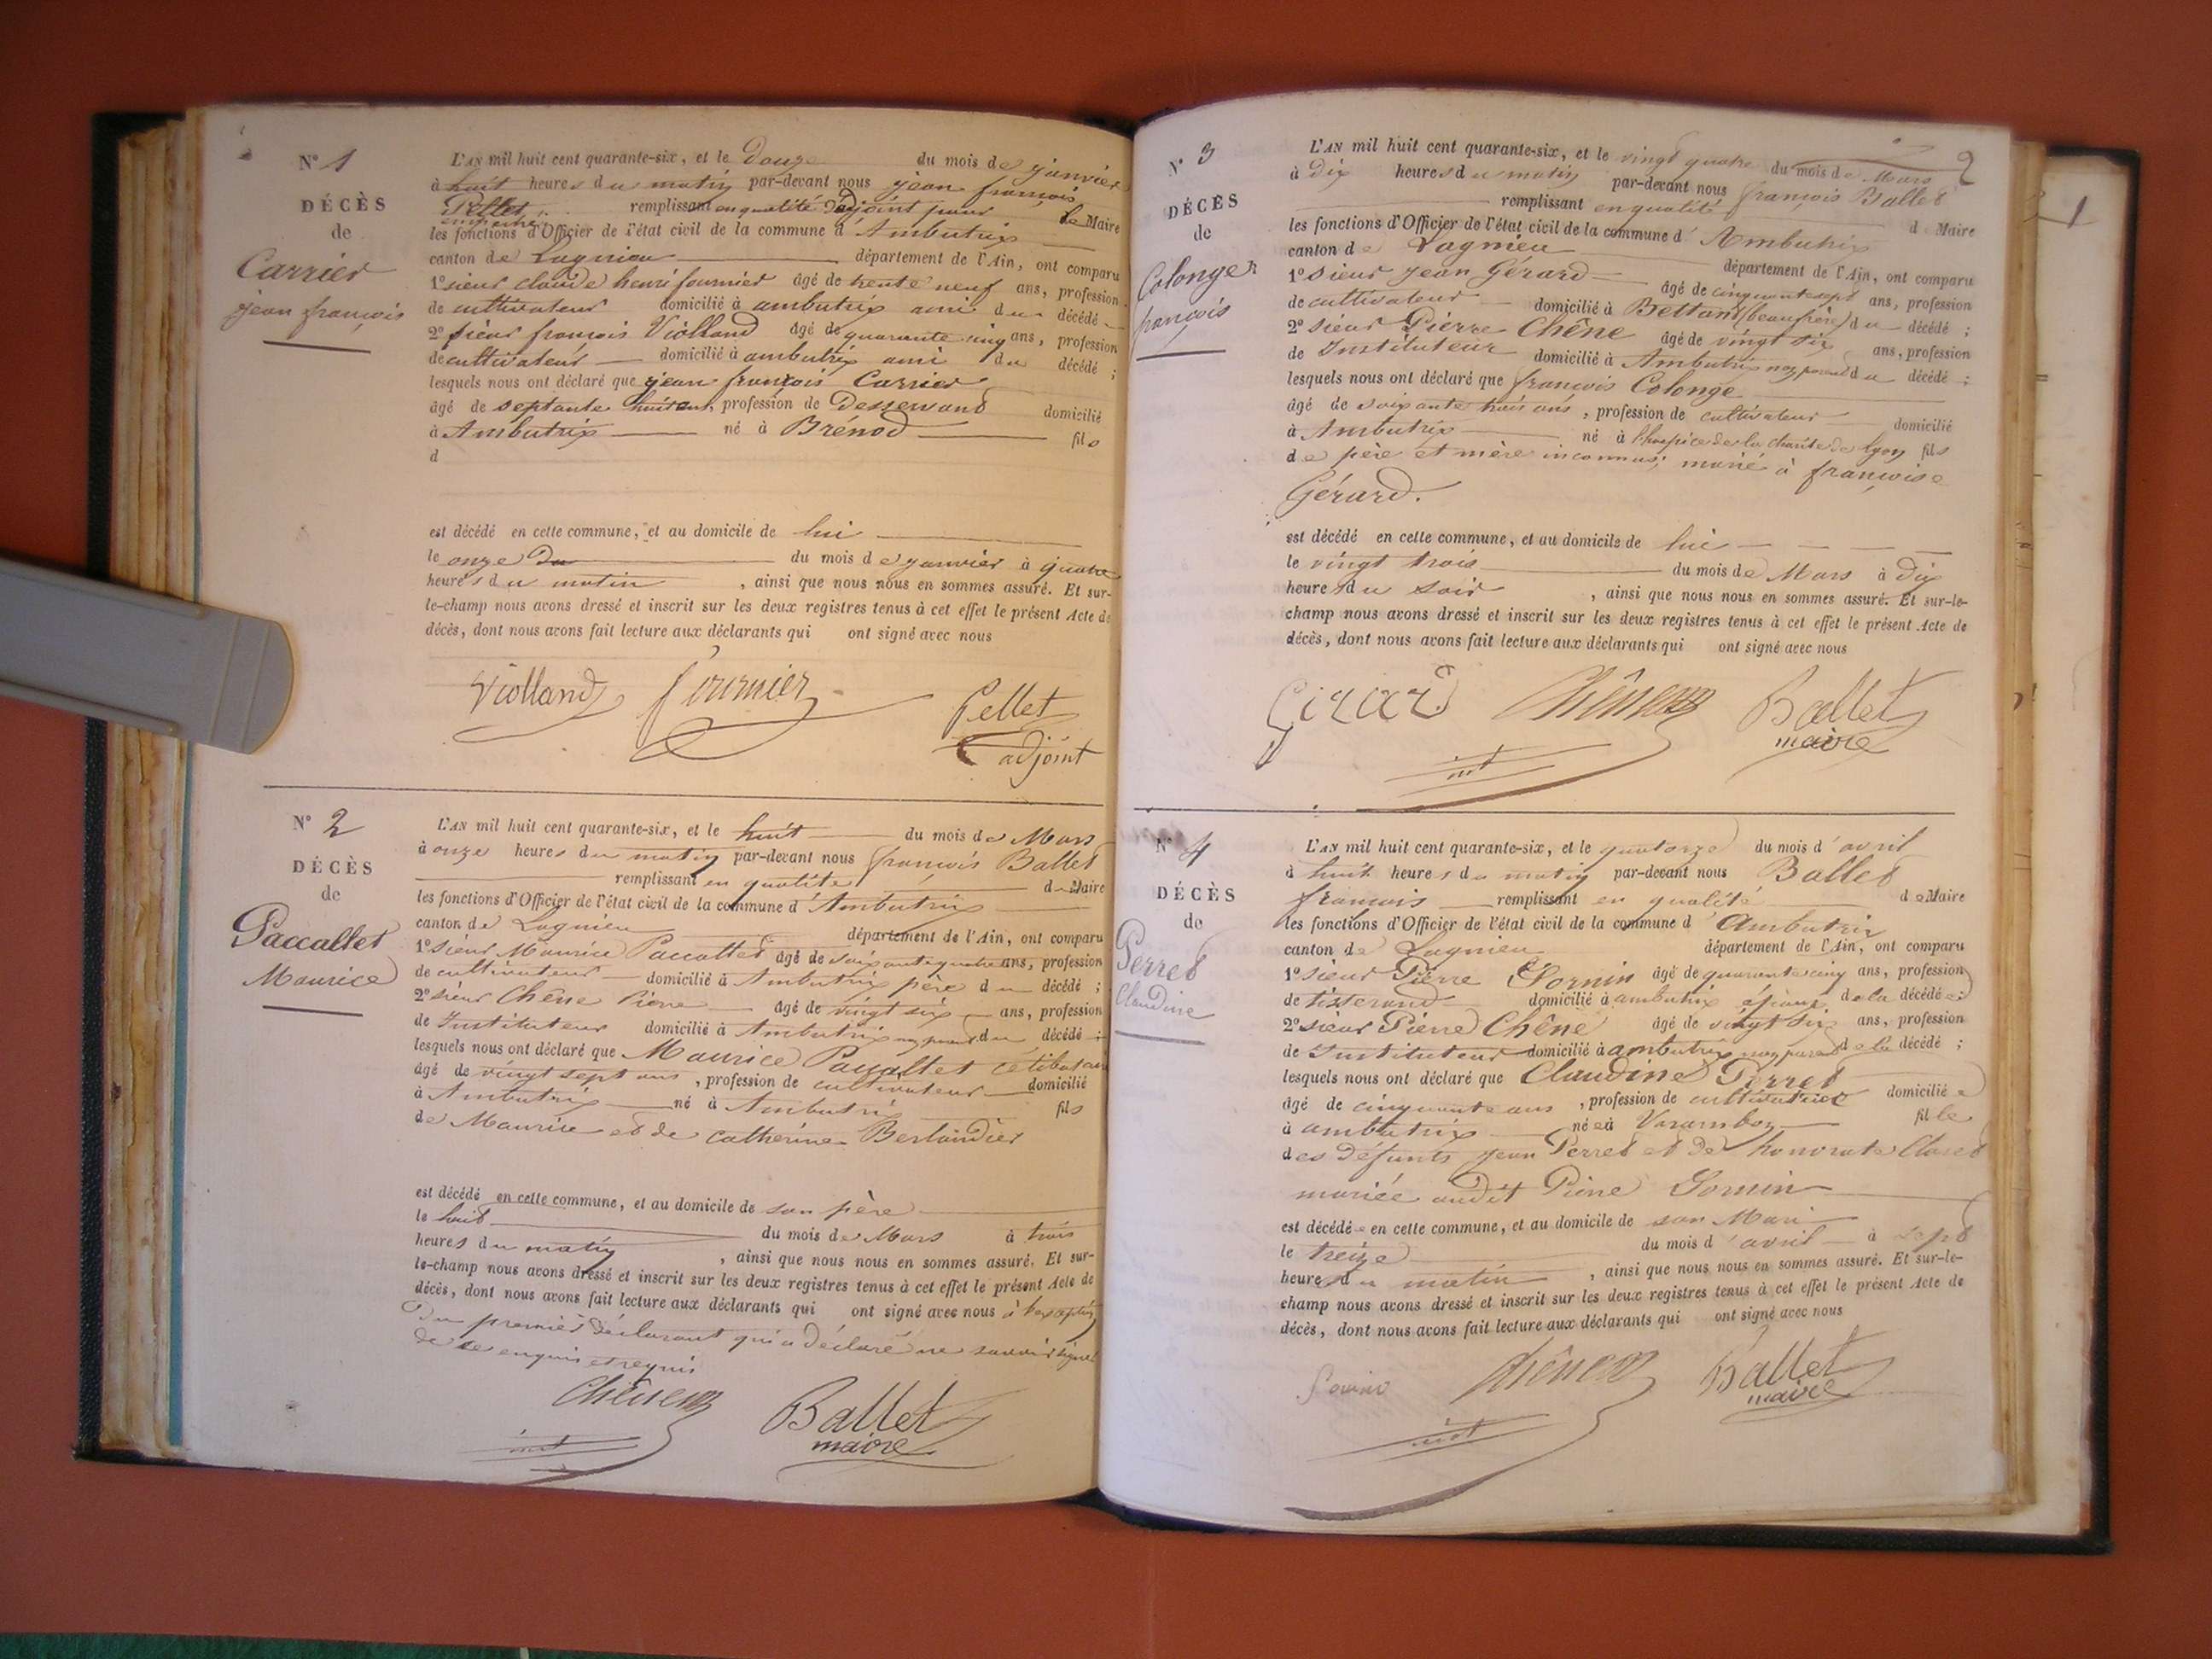 N° 1
DÉCÈS
de
Carrier
jean françois
L'AN mil huit cent quarante-six, et le douze du mois de janvier
à huit heures du matin par-devant nous jean françois
Pellet remplissant en qualité d'adjoint pour le Maire
empêché
les fonctions d'Officier de l'état civil de la commune d'Ambutrix
canton de Lagnieu département de l'Ain, ont comparu
1° sieur claude henri fournier âgé de trente neuf ans, profession
de cultivateur domicilié à ambutrix ami du décédé
2° sieur françois Violland âgé de quarante cinq ans, profession
de cultivateur domicilié à ambutrix ami du décédé ;
lesquels nous ont déclaré que jean françois Carrier
âgé de septante huit ans, profession de Desservant domicilié
à Ambutrix né à Brénod fils
d
est décédé en cette commune, et au domicile de lui
le onze du du mois de janvier à quatre
heures du matin , ainsi que nous nous en sommes assuré. Et sur-
le-champ nous avons dressé et inscrit sur les deux registres tenus à cet effet le présent Acte de
décès, dont nous avons fait lecture aux déclarants qui ont signé avec nous
Violland fournier Pellet
adjoint
N° 2
DÉCÈS
de
Paccallet
Maurice
L'AN mil huit cent quarante-six, et le huit du mois de Mars
à onze heures du matin par-devant nous françois Ballet
remplissant en qualité de Maire
les fonctions d'Officier de l'état civil de la commune d'Ambutrix
canton de Lagnieu département de l'Ain, ont comparu
1° sieur Maurice Paccallet âgé de soixante quatre ans, profession
de cultivateur domicilié à Ambutrix père du décédé ;
2° sieur Chêne Pierre âgé de vingt six ans, profession
de Instituteur domicilié à Ambutrix non parent du décédé ;
lesquels nous ont déclaré que Maurice Paccallet célibataire
âgé de vingt sept ans , profession de cultivateur domicilié
à Ambutrix né à Ambutrix fils
de Maurice et de Catherine Berlandier
est décédé en cette commune, et au domicile de son père
le huit du mois de Mars à trois
heures du matin , ainsi que nous nous en sommes assuré. Et sur-
le-champ nous avons dressé et inscrit sur les deux registres tenus à cet effet le présent Acte de
décès, dont nous avons fait lecture aux déclarants qui ont signé avec nous à l'exception
Du premier déclarant qui a déclaré ne savoir signer
de ce enquis et requis
Chêne Ballet
inst maire
2
N° 3
DÉCÈS
de
Colonge
françois
L'AN mil huit cent quarante-six, et le vingt quatre du mois de Mars
à dix heures du matin par-devant nous françois Ballet
remplissant en qualité d Maire
les fonctions d'Officier de l'état civil de la commune d'Ambutrix
canton de Lagnieu département de l'Ain, ont comparu
1° sieur jean Gérard âgé de cinquante sept ans, profession
de cultivateur domicilié à Bettant (beau frère) du décédé ;
2° sieur Pierre Chêne âgé de vingt six ans, profession
de Instituteur domicilié à Ambutrix non parent du décédé ;
lesquels nous ont déclaré que françois Colonge
âgé de soixante trois ans , profession de cultivateur domicilié
à Ambutrix né à l'hospice de la charité de Lyon fils
de père et mère inconnus ; marié à françoise
Gérard.
est décédé en cette commune, et au domicile de lui
le vingt trois du mois de Mars à dix
heures du soir , ainsi que nous nous en sommes assuré. Et sur-le-
champ nous avons dressé et inscrit sur les deux registres tenus à cet effet le présent Acte de
décès, dont nous avons fait lecture aux déclarants qui ont signé avec nous
Girard Chêne Ballet
inst maire
N° 4
DÉCÈS
de
Perret
Claudine
L'AN mil huit cent quarante-six, et le quatorze du mois d'avril
à huit heures du matin par-devant nous Ballet
françois remplissant en qualité de Maire
les fonctions d'Officier de l'état civil de la commune d Ambutrix
canton de Lagnieu département de l'Ain, ont comparu
1° sieur Pierre Sornin âgé de quarante cinq ans, profession
de tisserand domicilié à ambutrix époux de la décédée ;
2° sieur Pierre Chêne âgé de vingt six ans, profession
de Instituteur domicilié à ambutrix non parent de la décédé ;
lesquels nous ont déclaré que Claudine Perret
âgé de cinquante ans , profession de cultivatrice domiciliée
à ambutrix née à Varambon fille
des défunts jean Perret et de honorate Claret
mariée audit Pierre Sornin
est décédée en cette commune, et au domicile de son Mari
le treize du mois d'avril à sept
heures du matin , ainsi que nous nous en sommes assuré. Et sur-le-
champ nous avons dressé et inscrit sur les deux registres tenus à cet effet le présent Acte de
décès, dont nous avons fait lecture aux déclarants qui ont signé avec nous
Chêne Ballet
inst maire
1